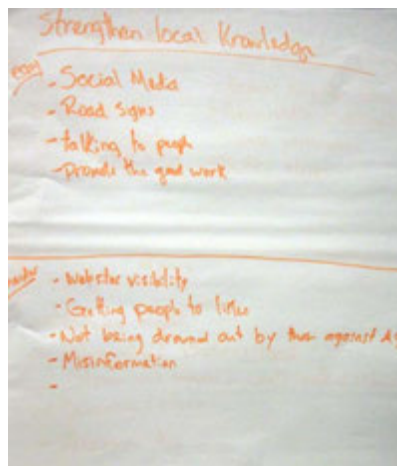 Strengthen local Knowledge
easy
- Social Media
- Road signs
- talking to people
- promote the good work
harder
- Website visibility
- Getting people to listen
- Not being drowned out by those against Ag
- Misinformation
-